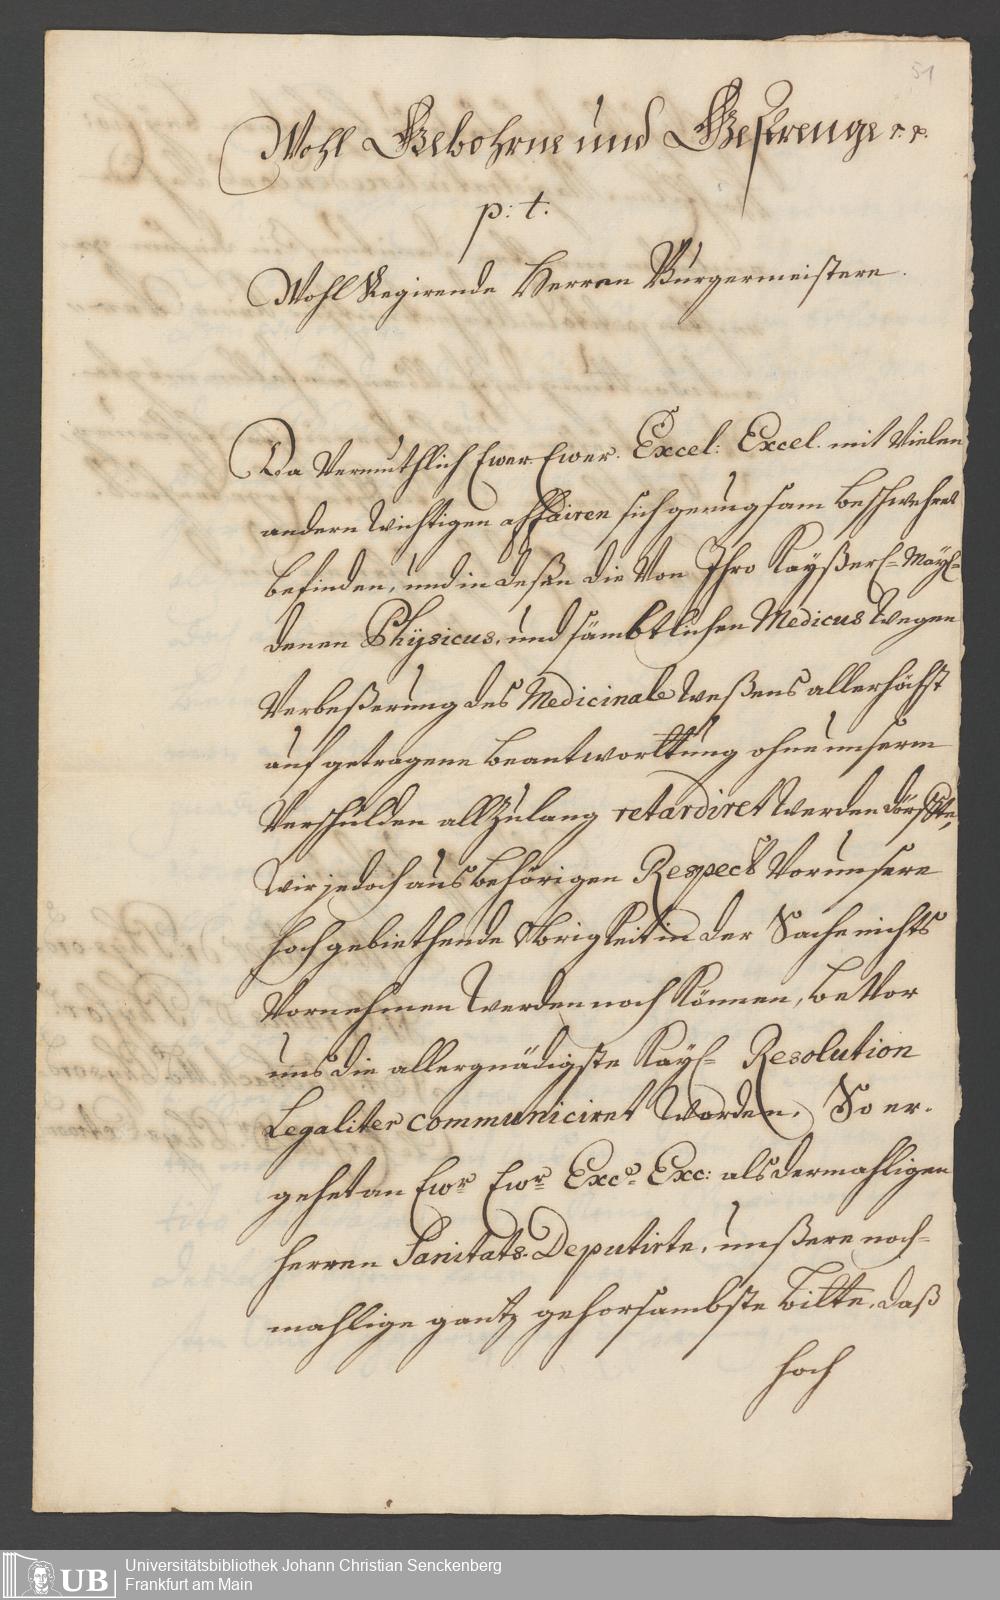 51
Wohl Gebohrne und Gestrenge r. r.
p: t.
Wohl Regirende Herren Bürgermeistere.
Da Vermuthlich Ewer. Ewer. Excel: Excel. mit Vielen
andern wichtigen affairen sich genugsam beschwehret
befinden, und in deßen die Von Ihro Kayßerl- Mayl-
denen Physicus, und sämbtlichen Medicus wegen
Verbeßerung des Medicinale weßens allerhöchst
auf getragene beantworttung ohne unserm
Verschulden allzulang retardiret werden dörffte,
Wir jedoch aus behörigen Respect Vor unsere
hochgebiethende Obrigkeit in der Sache nichts
Vornehmen werden noch können, beVor
uns die allergnädigste Kayl- Resolution
Legaliter communiciret worden. So er-
gehet an Ewr Ewr Exc: Exc: als dermahligen
Herren Sanitats-Deputirte, unßere noch-
mahlige gantz gehorsambste bitte, daß
hoch
UB Universitätsbibliothek Johann Christian Senckenberg
Frankfurt am Main